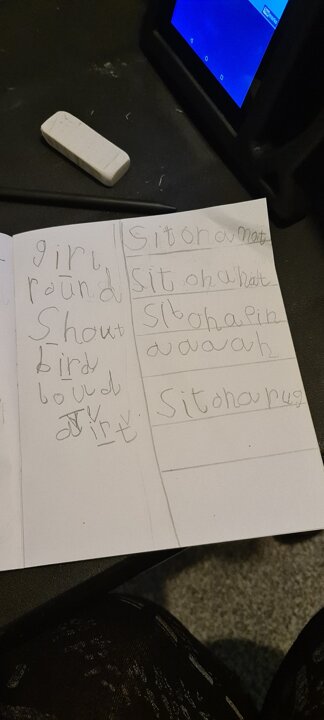 girl
round
Shout
bird
loud
dirt
Sit on a mat
Sit on a hat
Sit on a pin
a a a a h
Sit on a rug